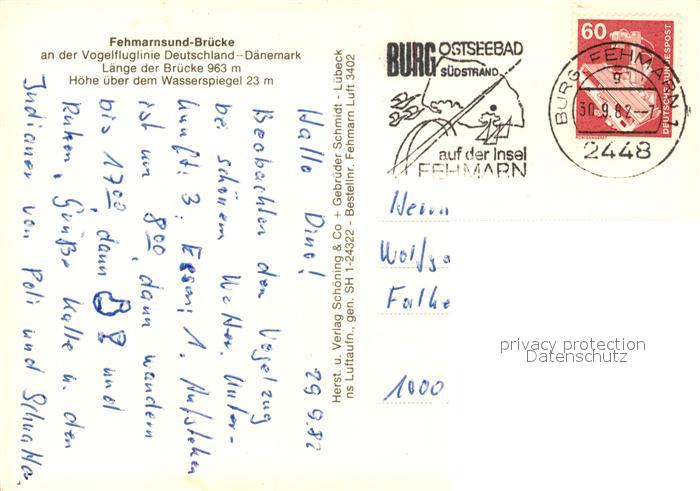 Fehmarnsund-Brücke
an der Vogelfluglinie Deutschland–Dänemark
Länge der Brücke 963 m
Höhe über dem Wasserspiegel 23 m
Hallo Dino! 29.9.82
Beobachten den Vogelzug
bei schönem Wetter. Unter-
kunft: 3; Essen: 1. Aufstehen
ist um 8.00, dann wandern
bis 17.00, dann und
Ruhen. Grüße Kalle u. den
Indianer von Poli und
Herst. u. Verlag Schöning & Co + Gebrüder Schmidt - Lübeck
ns Luftaufn., gen. SH 1-24322 - Bestellnr. Fehmarn Luft 3402
BURG OSTSEEBAD
SÜDSTRAND
auf der Insel
FEHMARN
60
DEUTSCHE BUNDESPOST
BURG, FEHMARN 1
g
30.9.82
2448
Herrn
Wolfga
Falke
1000
privacy protection
Datenschutz